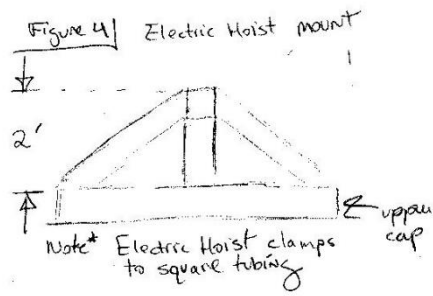 Figure 4 Electric Hoist mount
2'
upper
cap
Note* Electric Hoist clamps
to square tubing